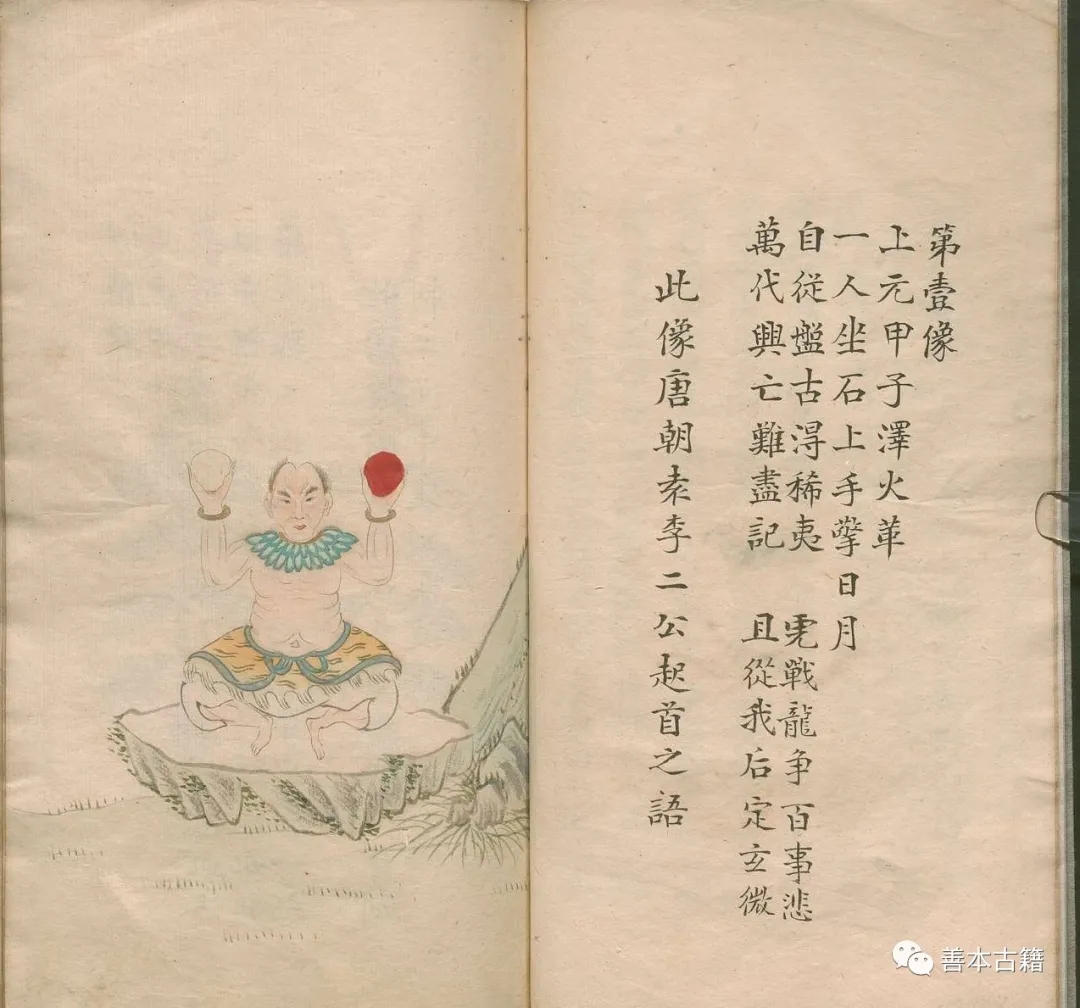 第壹像
上元甲子澤火革
一人坐石上手擎日月
自從盤古淂稀夷　虎戰龍争百事悲
萬代興亡難盡記　且從我后定玄微
此像唐朝袁李二公起首之語
善本古籍